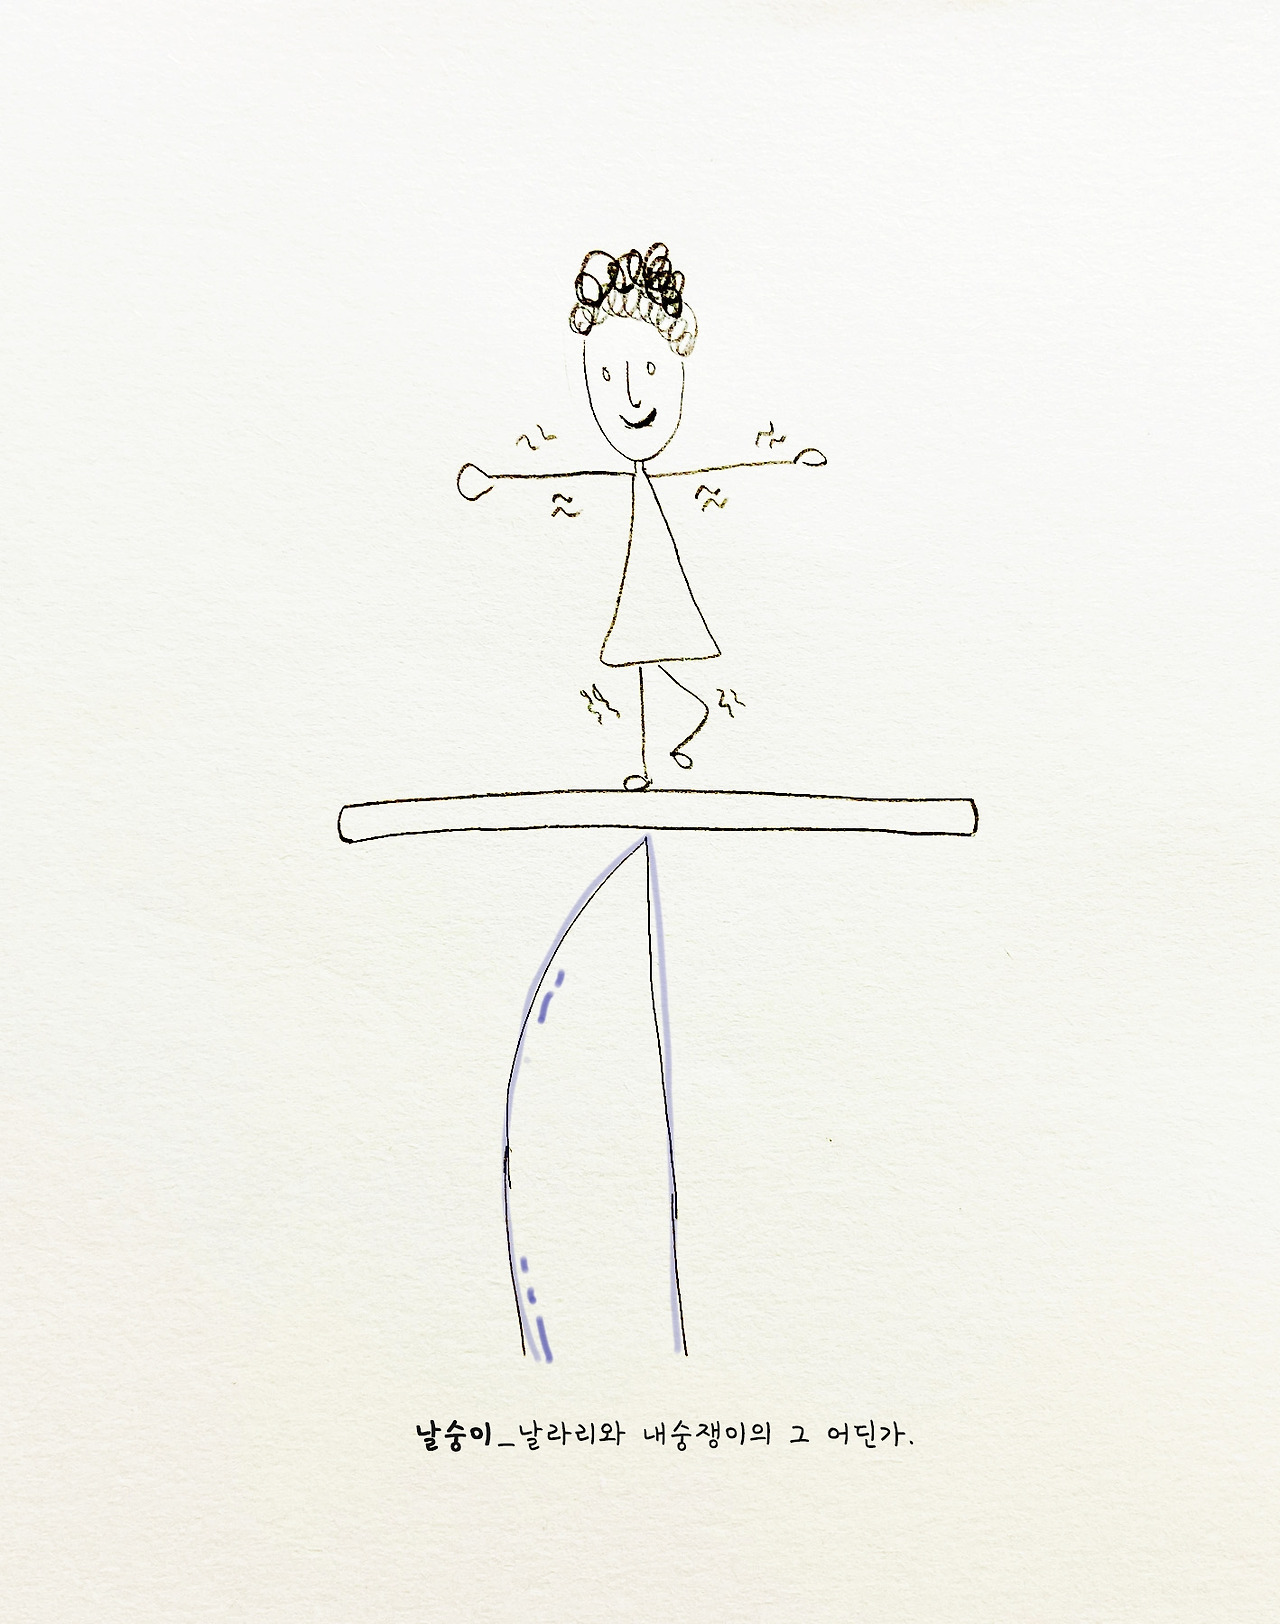 날숭이_날라리와 내숭쟁이의 그 어딘가.